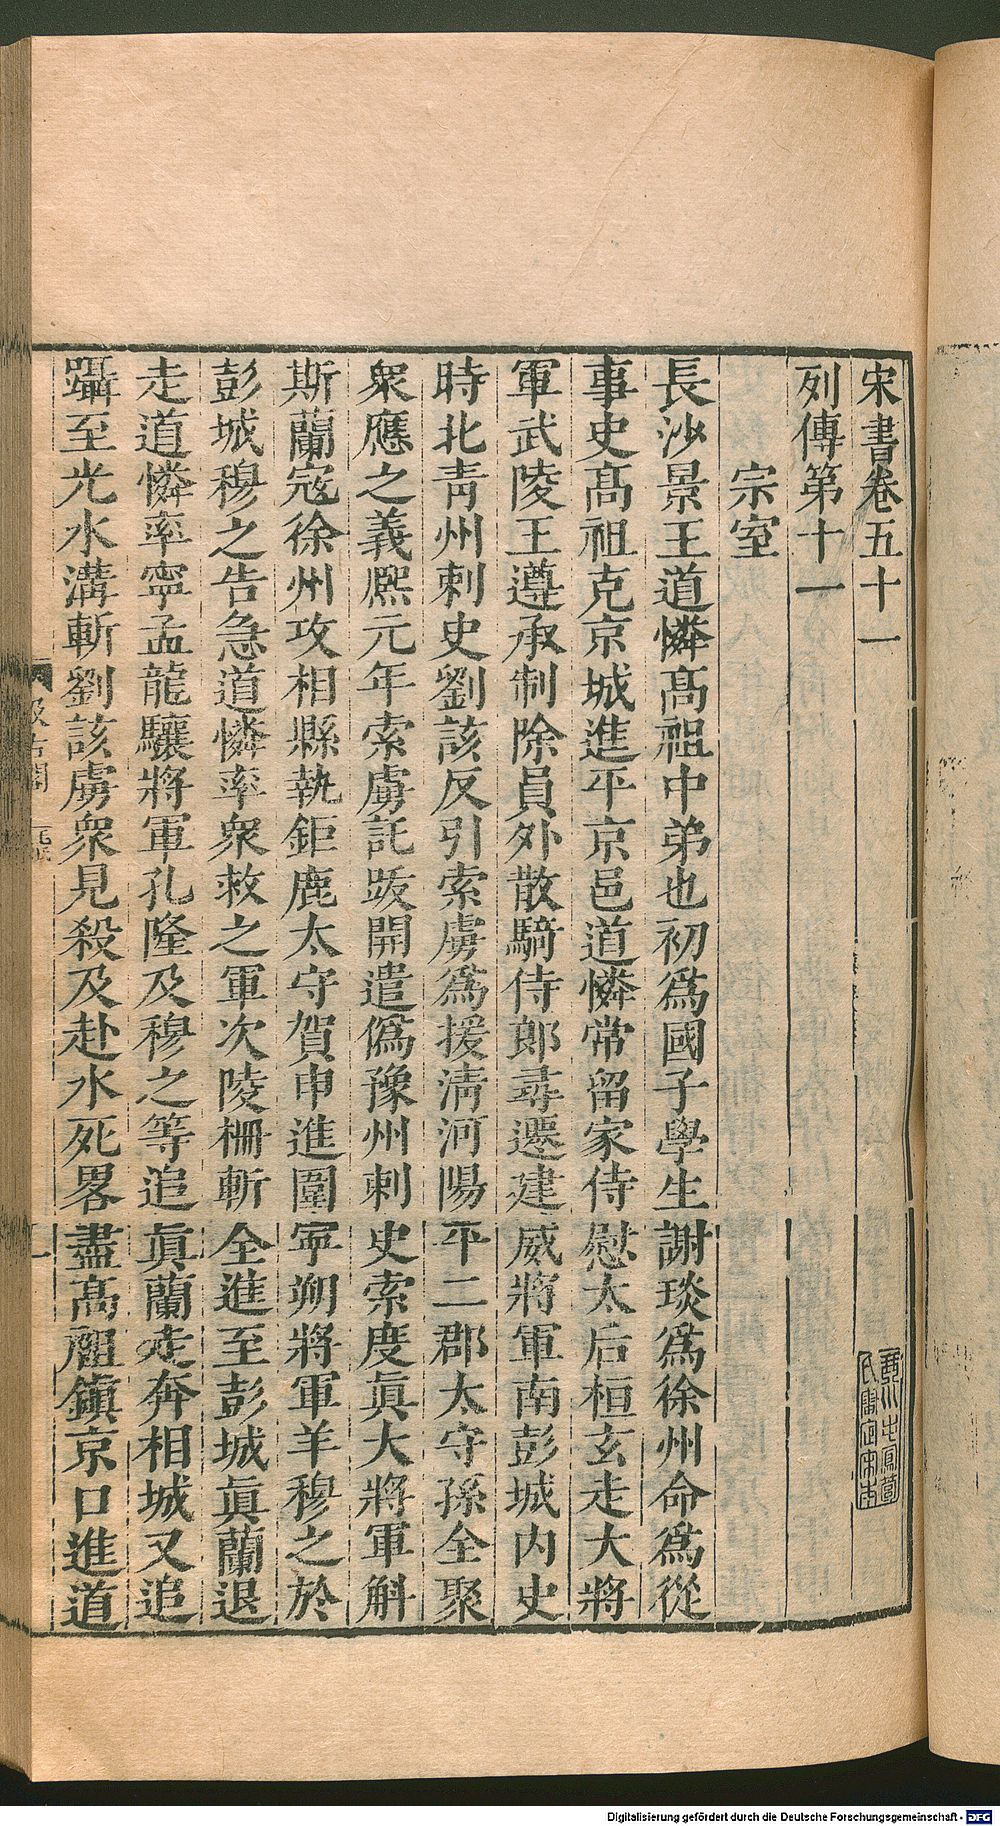 宋書卷五十一
列傳第十一
宗室
長沙景王道憐髙祖中弟也初爲國子學生謝琰爲徐州命爲從
事史髙祖克京城進平京邑道憐常留家侍慰太后桓玄走大將
軍武陵王遵承制除員外散騎侍郞尋遷建威將軍南彭城内史
時北青州刺史劉該反引索虜爲援淸河陽平二郡太守孫全聚
衆應之義熈元年索虜託跋開遣僞豫州刺史索度眞大將軍斛
斯蘭寇徐州攻相縣執鉅鹿太守賀申進圍寧朔將軍羊穆之於
彭城穆之告急道憐率衆救之軍次陵柵斬全進至彭城眞蘭退
走道憐率寧孟龍驤將軍孔隆及穆之等追眞蘭走奔相城又追
躡至光水溝斬劉該虜衆見殺及赴水死畧盡髙祖鎭京口進道
汲古閣
一
Digitalisierung gefördert durch die Deutsche Forschungsgemeinschaft - DFG